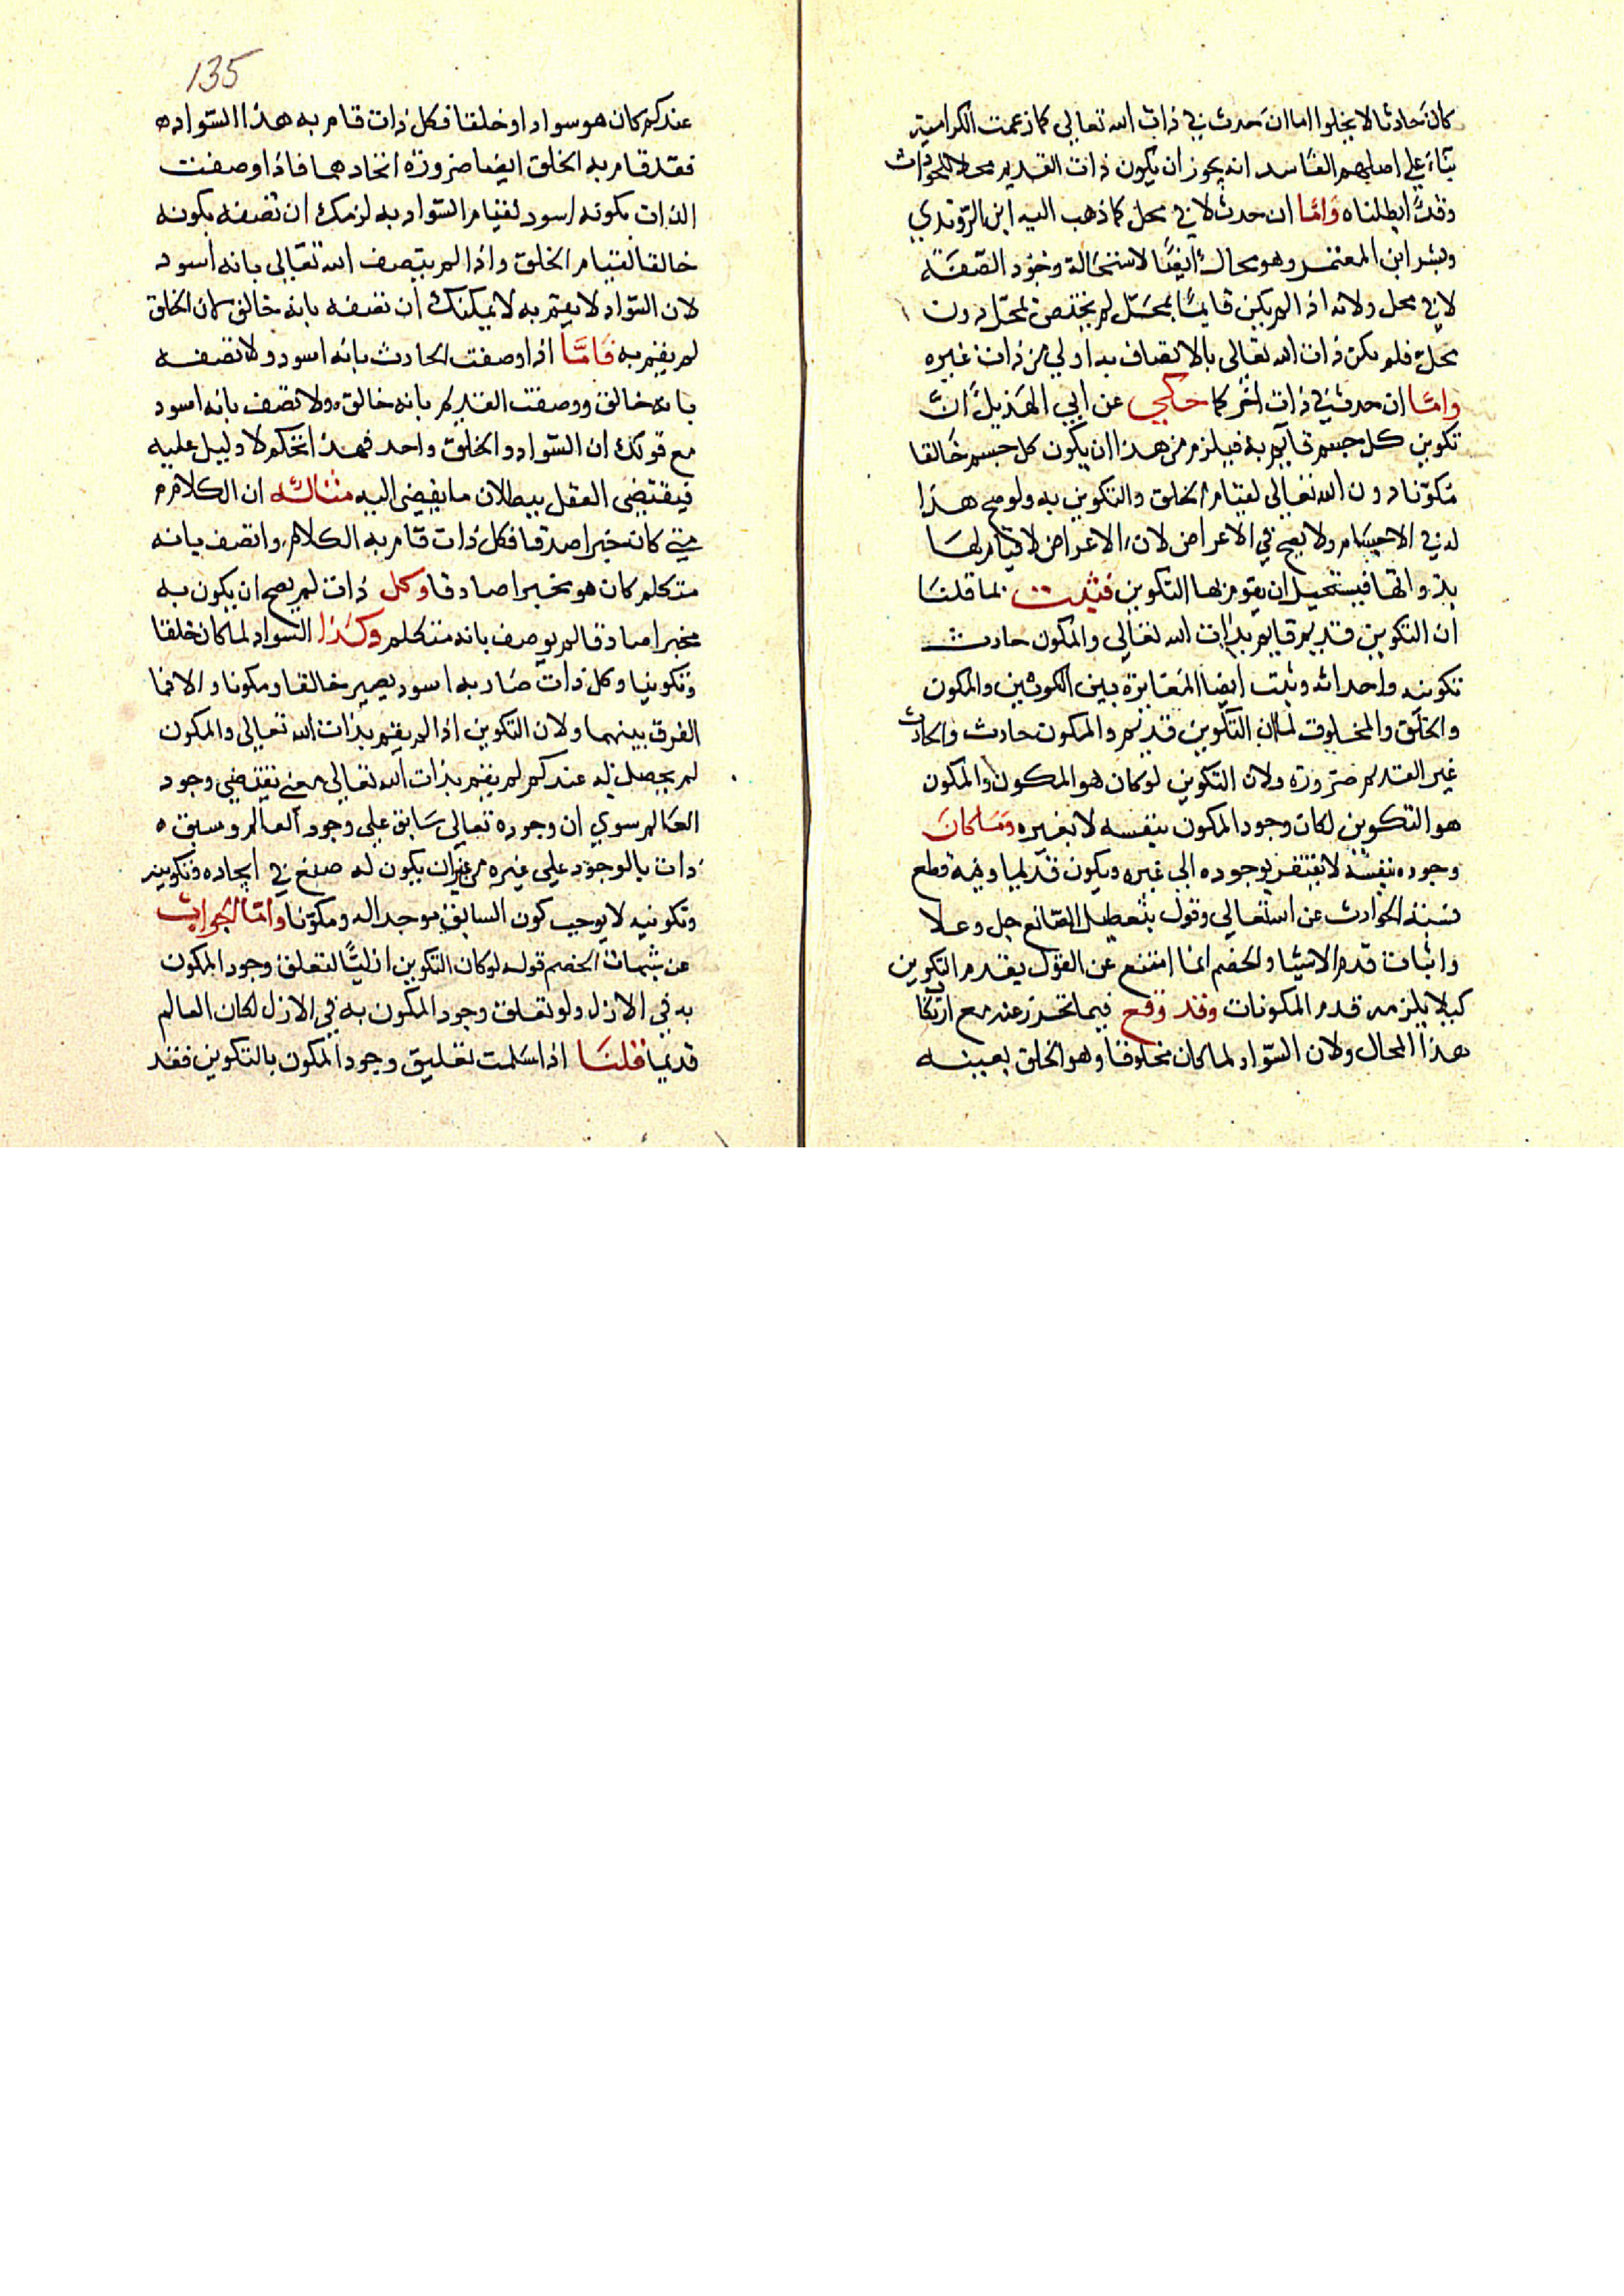 كان حادثا لا يخلوا اما ان حدث في ذات الله تعالى كما زعمت الكرامية
بناء على اصلهم الفاسد انه يجوز ان يكون ذات القديم محلا للحوادث
وقد ابطلناه واما ان حدث لا في محل كما ذهب اليه ابن الروندي
وبشر ابن المعتمر وهو محال ايضا لاستحالة وجود الصفة
لا في محل ولانه اذا لم يكن قايما بمحل لم يختص بمحل دون
محل فلم يكن ذات الله تعالى بالاتصاف به اولى من ذات غيره
واما ان حدث في ذات اخر كما حكي عن ابي الهذيل ان
تكوين كل جسم قايم به فيلزم من هذا ان يكون كل جسم خالقا
مكونا دون الله تعالى لقيام الخلق والتكوين به ولو صح هذا
له في الاجسام ولا يصح في الاعراض لان الاعراض لا قيام لها
بذواتها فيستحيل ان يقوم بها التكوين فثبت بما قلنا
ان التكوين قديم قايم بذات الله تعالى والمكون حادث
تكوينه واحداثه وثبت ايضا المغايرة بين التكوين والمكون
والخلق والمخلوق لما ان التكوين قديم والمكون حادث والحادث
غير القديم ضرورة ولان التكوين لو كان هو المكون والمكون
هو التكوين لكان وجود المكون بنفسه لا بغيره وما كان
وجوده بنفسه لا يفتقر بوجوده الى غيره ويكون قديما وفيه قطع
نسبة الحوادث عن الله تعالى وقول بتعطيل الصانع جل وعلا
واثبات قدم الاشيا والخصم انما امتنع عن القول بقدم التكوين
كيلا يلزمه قدم المكونات وقد وقع فيما تحرز عنه مع ارتكاب
هذا المحال ولان السواد لما كان مخلوقا وهو الخلق بعينه
135
عندكم كان هو سوادا وخلقا فكل ذات قام به هذا السواد
فقد قام به الخلق ايضا ضرورة اتحادهما فاذا وصفت
الذات بكونه اسود لقيام السواد به لزمك ان تصفه بكونه
خالقا لقيام الخلق واذا لم يتصف الله تعالى بانه اسود
لان السواد لا يقم به لا يمكنك ان تصفه بانه خالق كان الخلق
لم يقم به فاما اذا وصفت الحادث بانه اسود ولا تصفه
بانه خالق ووصفت القديم بانه خالق ولا تصف بانه اسود
مع قولك ان السواد والخلق واحد فهذا تحكم لا دليل عليه
فيقتضي العقل ببطلان ما يفضي اليه مثاله ان الكلام
متى كان خبرا صدقا فكل ذات قام به الكلام واتصف بانه
متكلم كان هو مخبرا صادقا وكل ذات لم يصح ان يكون به
مخبرا صادقا لم يوصف بانه متكلم وكذا السواد لما كان خلقا
وتكوينا وكل ذات صار به اسود يصير خالقا ومكونا والا فما
الفرق بينهما ولان التكوين اذا لم يقم بذات الله تعالى والمكون
لم يحصل به عندكم لم يقم بذات الله تعالى معنى يقتضي وجود
العالم سوى ان وجوده تعالى سابق على وجود العالم وسبق
ذات بالوجود على غيره من غير ان يكون له صنع في ايجاده وتكوينه
وتكوينه لا يوجب كون السابق موجدا له ومكونا واما الجواب
عن شبهات الخصم قوله لو كان التكوين ازليا لتعلق وجود المكون
به في الازل ولو تعلق وجود المكون به في الازل لكان العالم
قديما قلنا اذا سلمت تعليق وجود المكون بالتكوين فقد